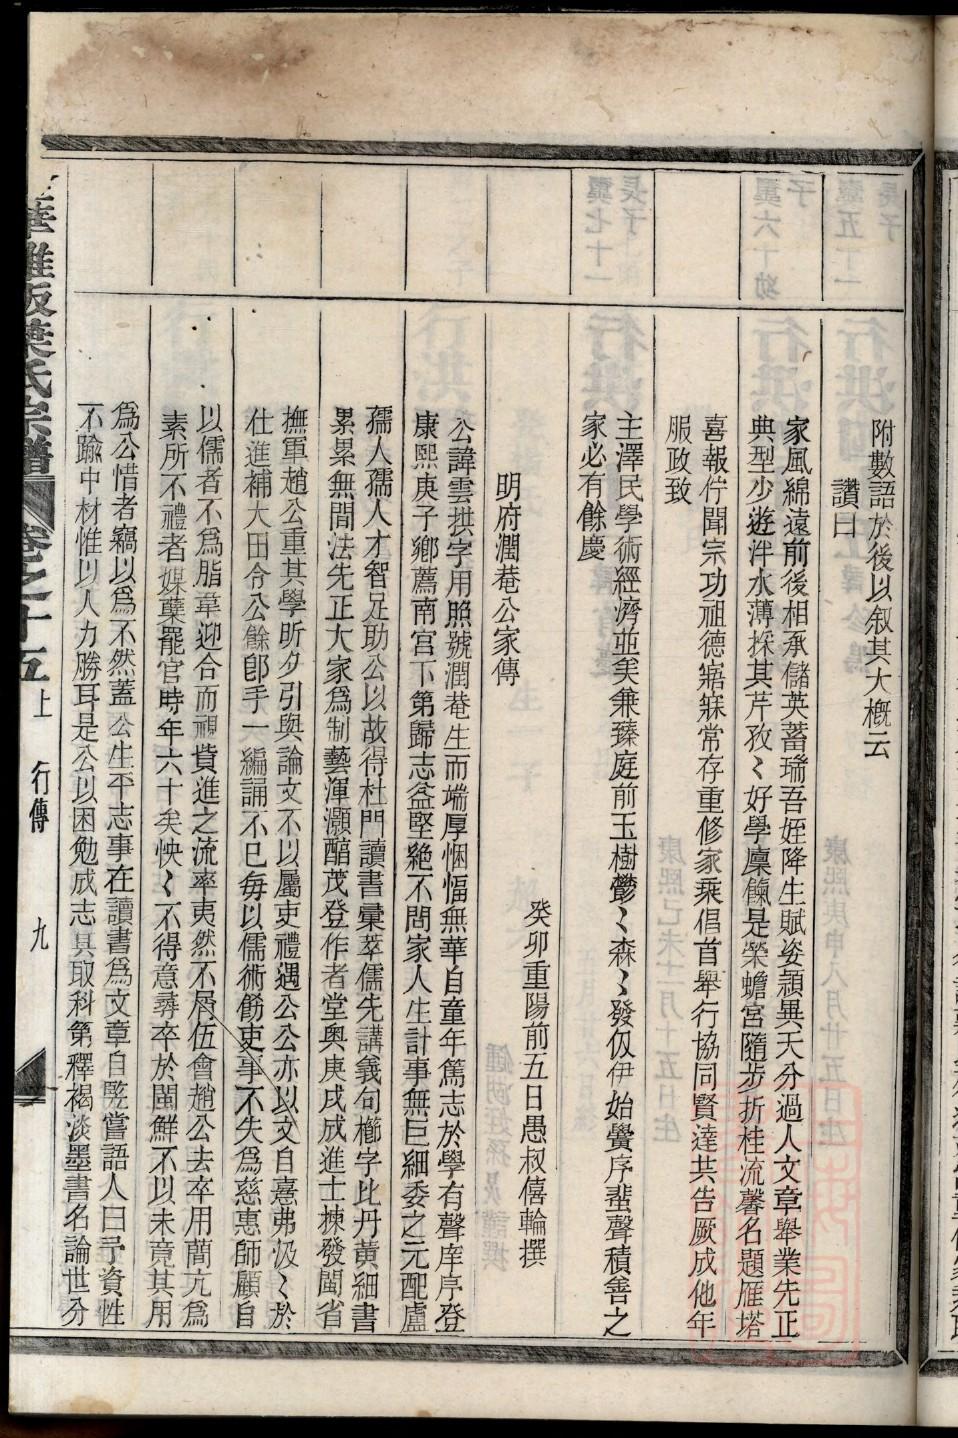 附數語於後以叙其大槪云
讚曰
家風綿遠前後相承儲英蓄瑞吾姪降生賦姿頴異天分過人文章舉業先正
典型少遊泮水薄採其芹孜〻好學廩餼是榮蟾宮隨步折桂流馨名題雁塔
喜報佇聞宗功祖德寤寐常存重修家乘倡首舉行協同賢達共告厥成他年
服政致
主澤民學術經濟並矣兼臻庭前玉樹鬱〻森〻發伋伊始黌序蜚聲積善之
家必有餘慶
癸卯重陽前五日愚叔僖輪撰
明府潤菴公家傳
公諱雲拱字用照號潤菴生而端厚悃愊無華自童年篤志於學有聲庠序登
康熙庚子鄉薦南宮下第歸志益堅絕不問家人生計事無巨細委之元配盧
孺人孺人才智足助公以故得杜門讀書彙萃儒先講義句櫛字比丹黃細書
累累無間法先正大家爲制藝渾灝醇茂登作者堂奧庚戌成進士揀發閩省
撫軍趙公重其學昕夕引與論文不以屬吏禮遇公公亦以文自憙弗汲〻於
仕進補大田令公餘卽手一編誦不已每以儒術飭吏事不失爲慈惠師顧自
以儒者不爲脂韋迎合而視貲進之流率夷然不屑伍會趙公去卒用簡亢爲
素所不禮者媒孽罷官時年六十矣怏〻不得意尋卒於閩鮮不以未竟其用
爲公惜者竊以爲不然蓋公生平志事在讀書爲文章自旣嘗語人曰予資性
不踰中材惟以人力勝耳是公以困勉成志其取科第釋褐淡墨書名論世分
華雅坂葉氏宗譜 卷之十五上 行傳 九